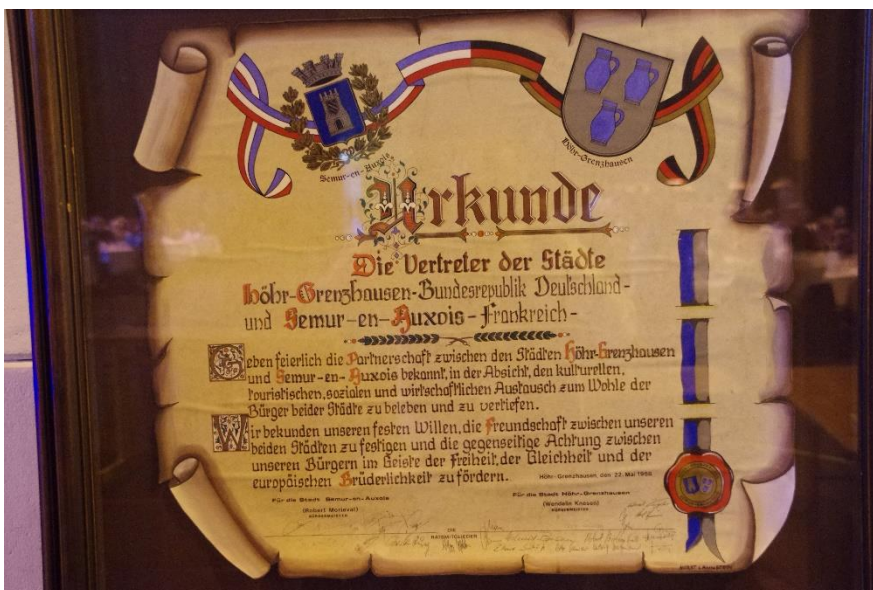 Semur-en-Auxois
Höhr-Grenzhausen
Urkunde
Die Vertreter der Städte
Höhr-Grenzhausen-Bundesrepublik Deutschland-
und Semur-en-Auxois-Frankreich-
Geben feierlich die Partnerschaft zwischen den Städten Höhr-Grenzhausen
und Semur-en-Auxois bekannt, in der Absicht, den kulturellen,
touristischen, sozialen und wirtschaftlichen Austausch zum Wohle der
Bürger beider Städte zu beleben und zu vertiefen.
Wir bekunden unseren festen Willen, die Freundschaft zwischen unseren
beiden Städten zu festigen und die gegenseitige Achtung zwischen
unseren Bürgern im Geiste der Freiheit, der Gleichheit und der
europäischen Brüderlichkeit zu fördern.
Höhr-Grenzhausen, den 22. Mai
Für die Stadt Semur-en-Auxois
Für die Stadt Höhr-Grenzhausen
(Robert Morleval)
BÜRGERMEISTER
(Wendelin Knopp)
BÜRGERMEISTER
DIE
RATSMITGLIEDER